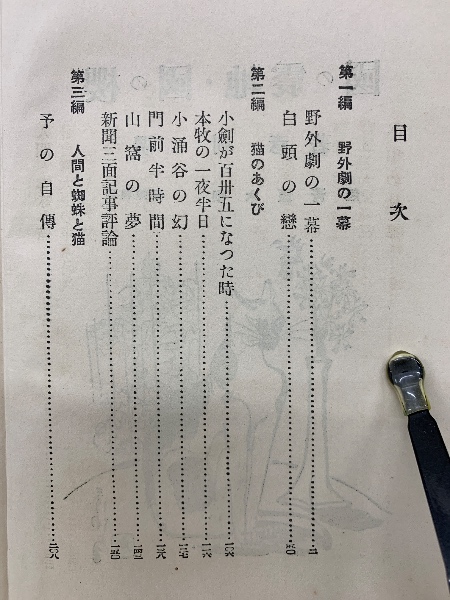 目次
第一編 野外劇の一幕
野外劇の一幕
白頭の戀
第二編 猫のあくび
小劍が百卅五になつた時
本牧の一夜半日
小涌谷の幻
門前半時間
山窩の夢
新聞三面記事評論
第三編 人間と蜘蛛と猫
予の自傳